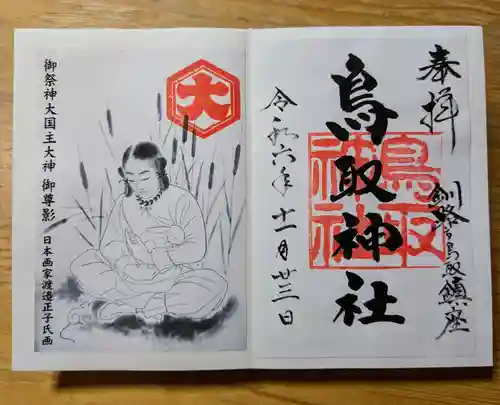 奉拝
釧路鳥取鎮座
鳥取神社
鳥取神社
令和六年十一月廿三日
大
御祭神大国主大神 御尊影
日本画家渡邉正子氏画